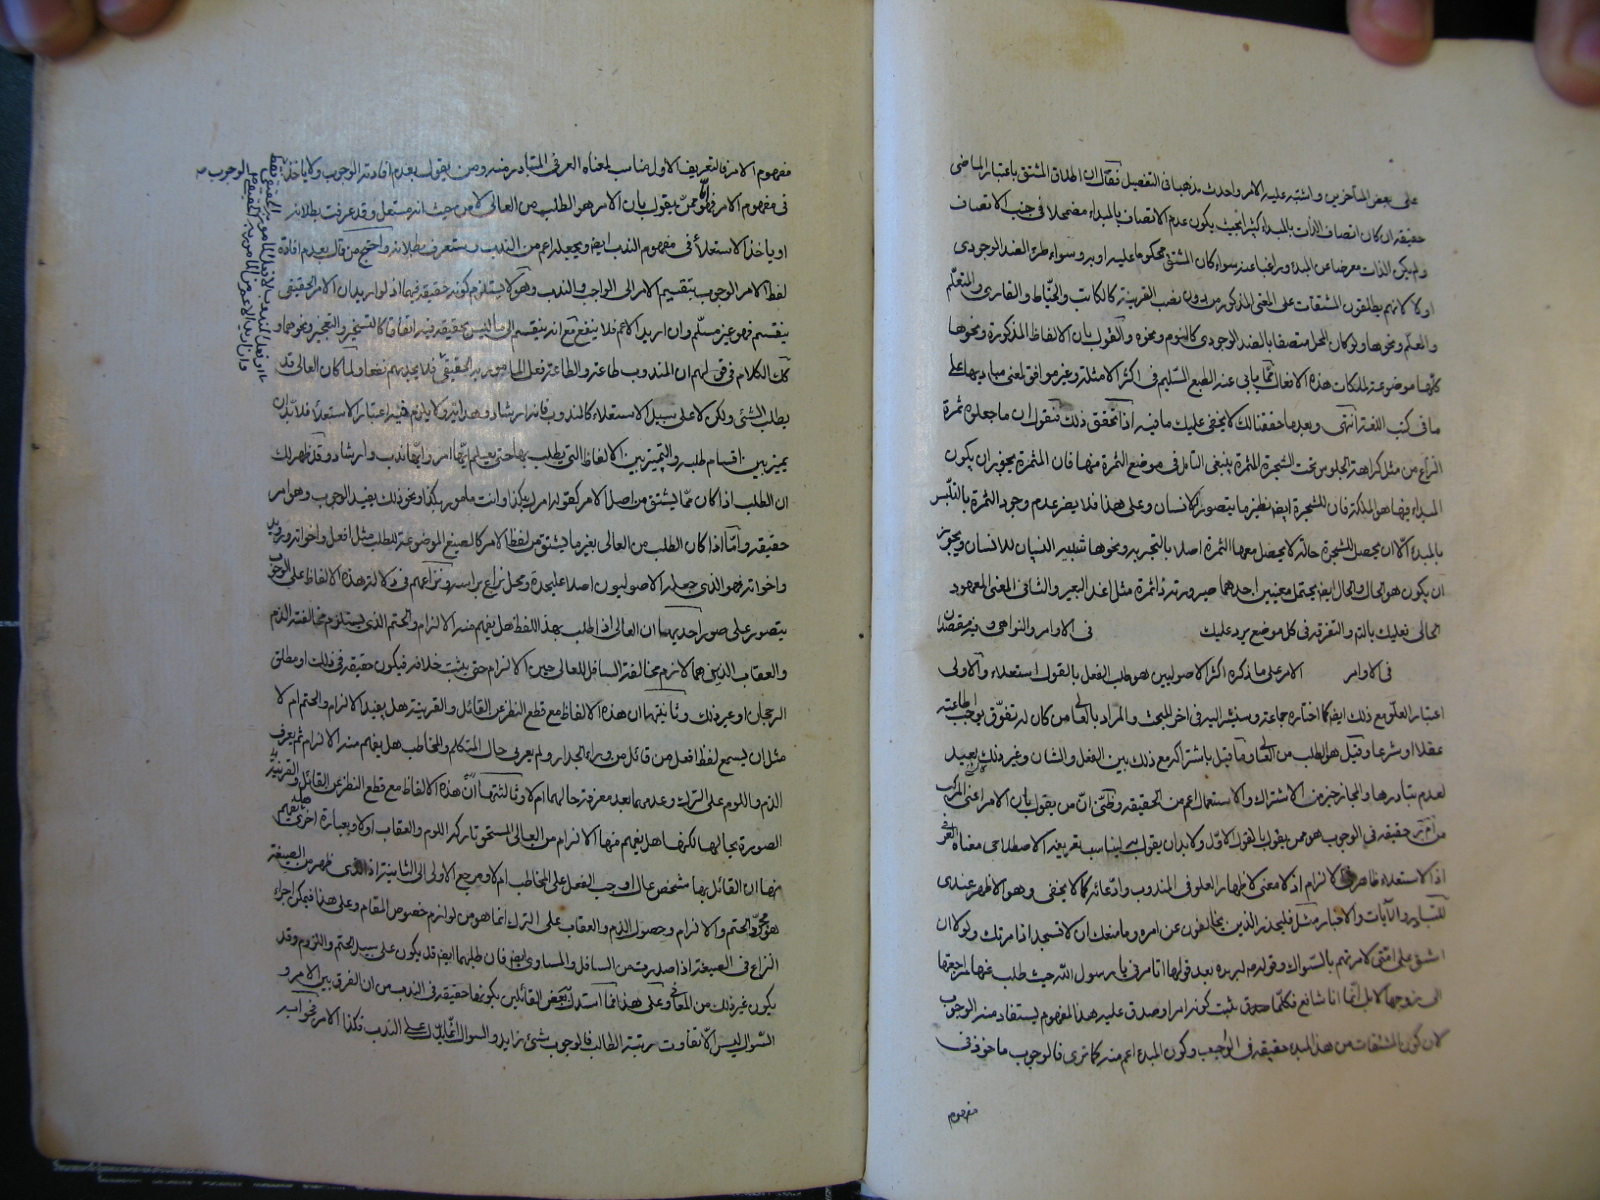 على بعض المتأخرين واشتبه عليه الامر واحدث مذهبا فى التفصيل فقال ان اطلاق المشتق باعتبار الماضى
حقيقة ان كان اتصاف الذات بالمبداء اكثريا بحيث يكون عدم الاتصاف بالمبداء مضمحلا فى جنب الاتصاف
ولم يكن الذات معرضا عن المبدء وراغبا عنه سواء كان المشتق محكوما عليه او به وسواء طرء الضد الوجودى
او لا لانهم يطلقون المشتقات على المعنى المذكور من دون نصب القرينة كالكاتب والخياط والقارى والمتعلم
والمعلم ونحوها ولو كان المحل متصفا بالضد الوجودى كالنوم ونحوه والقول بان الالفاظ المذكورة ونحوها
كلها موضوعة لملكات هذه الافعال مما يابى عنه الطبع السليم فى اكثر الامثلة وغير موافق لمعنى مباديها على
ما فى كتب اللغة انتهى وبعد ما حققنا لك لا يخفى عليك ما فيه اذا تحقق ذلك فنقول ان ما جعلوه ثمرة
النزاع من مثل كراهة الجلوس تحت الشجرة المثمرة ينبغى التامل فى موضع الثمرة منها فان المثمرة يجوز ان يكون
المبداء فيها هو الملكة فان للشجرة ايضا نظير ما يتصور للانسان وعلى هذا فلا يضر عدم وجود الثمرة بالتلبس
بالمبدء الا ان يحصل للشجرة حالة لا يحصل معها الثمرة اصلا بالتجربة ونحوها شبيه النسيان للانسان ويجوز
ان يكون هو الحال والحال ايضا يحتمل معنيين احدهما صيرورته ذا ثمرة مثل اغد البعير والثانى المعنى المعهود
الحالى فعليك بالتامل والتفرقة فى كل موضع يرد عليك فى الاوامر والنواهى وفيه مقصدان
فى الاوامر الامر على ما ذكره اكثر الاصوليين هو طلب الفعل بالقول استعلاء والاولى
اعتبار العلو مع ذلك ايضا كما اختاره جماعة وسنشير اليه فى اخر المبحث والمراد بالعالى من كان له تفوق يوجب اطاعته
عقلا او شرعا وقيل هو الطلب من العالى وما قيل باشتراكه مع ذلك بين الفعل والشان وغير ذلك بعيد
لعدم تبادرها والمجاز خير من الاشتراك والاستعمال اعم من الحقيقة وظنى ان من يقول بان الامر اعنى المركب
من ا م ر حقيقة فى الوجوب هو ممن يقول بالقول الاول ولا بد ان يقول به ليناسب تعريفه الاصطلاحى معناه العرفى
اذ الاستعلاء ظاهر فى الالزام اذ لا معنى لاظهار العلو فى المندوب وادعائه كما لا يخفى وهو الاظهر عندى
للتبادر والآيات والاخبار مثل فليحذر الذين يخالفون عن امره وما منعك ان لا تسجد اذ امرتك ولولا ان
اشق على امتى لامرتهم بالسواك وقوله لبريرة بعد قولها اتامرنى يا رسول الله حيث طلب عنها مراجعتها
الى زوجها لا بل انما انا شافع فكلما صدق يثبت كونه امرا وصدق عليه هذا المفهوم يستفاد منه الوجوب
لان كون المشتقات من هذا المبدء حقيقة فى الواجب وكون المبدء اعم منه كما ترى فالوجوب ماخوذ فى
مفهوم
مفهوم الامر فالتعريف الاول مناسب لمعناه العرفى المتبادر منه ومن يقول بعدم افادته الوجوب ولا ياخذ
فى مفهوم الامر فهو اما ممن يقول بان الامر هو الطلب من العالى لا من حيث انه مستعل وقد عرفت بطلانه
او ياخذ الاستعلاء فى مفهوم الندب ايضا ويجعله اعم من الندب وستعرف بطلانه واحتج من قال بعدم افادة
لفظ الامر الوجوب بتقسيم الامر الى الواجب والندب وهو لا يستلزم كونه حقيقة فيهما اذ لو اريد ان الامر الحقيقى
ينقسم فهو غير مسلم وان اريد الاعم فلا ينفع مع انه ينقسم الى ما ليس بحقيقة فيه اتفاقا كالتسخير والتعجيز ونحوهما و
كك الكلام فى قولهم ان المندوب طاعة والطاعة فعل المامور به الحقيقى فلا يجديهم نفعا ولما كان العالى قد
يطلب الشئ ولكن لا على سبيل الاستعلاء كالمندوب فانه ارشاد وهداية ولا يلزم فيه اعتبار الاستعلاء فلا بد ان
يميز بين اقسام طلبه والتمييز بين الالفاظ التى يطلب بها حتى يعلم ايها امر وايها ندب وارشاد وقد ظهر لك
ان الطلب اذا كان مما يشتق من اصل الامر كقوله امرك بكذا وانت مامور بكذا ونحو ذلك يفيد الوجوب وهو امر
حقيقة واما اذا كان الطلب من العالى بغير ما يشتق من لفظ الامر كالصيغ الموضوعة للطلب مثل افعل واخواته ورويد
واخواته فهو الذى جعله الاصوليون اصلا عليحدة ومحل نزاع براسه ونزاعهم فى دلالة هذه الالفاظ على الوجوب
يتصور على صور احديها ان العالى اذا طلب بهذا اللفظ هل يفهم منه الالزام والحتم الذى يستلزم مخالفته الذم
والعقاب الذين هما لازم مخالفة السافل للعالى حين الالزام حتى يثبت خلافه فيكون حقيقة فى ذلك او مطلق
الرجحان او غير ذلك وثانيتها ان هذه الالفاظ مع قطع النظر عن القائل والقرينة هل يفيد الالزام والحتم ام لا
مثل ان يسمع لفظ افعل من قائل من وراء الجدار ولم يعرف حال المتكلم والمخاطب هل يفهم منه الالزام ثم يعرف
الذم واللوم على الترك وعدمهما بعد معرفة حالهما ام لا وثالثتها ان هذه الالفاظ مع قطع النظر عن القائل والقرينة
الصورة بحالها لكنها هل يفهم منها الالزام من العالى المستحق تاركه اللوم والعقاب اولا وبعبارة اخرى هل يفهم
منها ان القائل بها شخص عال اوجب الفعل على المخاطب ام لا ومرجع الاولى الى الثانية اذ الذى ظهر من الصيغة
هو مجرد الحتم والالزام وحصول الذم والعقاب على الترك انما هو من لوازم خصوص المقام وعلى هذا فيمكن اجراء
النزاع فى الصيغة اذا صدرت من السافل والمساوى ايضا فان طلبهما ايضا قد يكون على سبيل الحتم واللزوم وقد
يكون غير ذلك من المعانى وعلى هذا فما استدل بعض القائلين بكونها حقيقة فى الندب من ان الفرق بين الامر و
السؤال ليس الا تفاوت رتبة الطالب فالوجوب شئ زايد والسؤال انما يدل على الندب فكذا الامر فجوابه